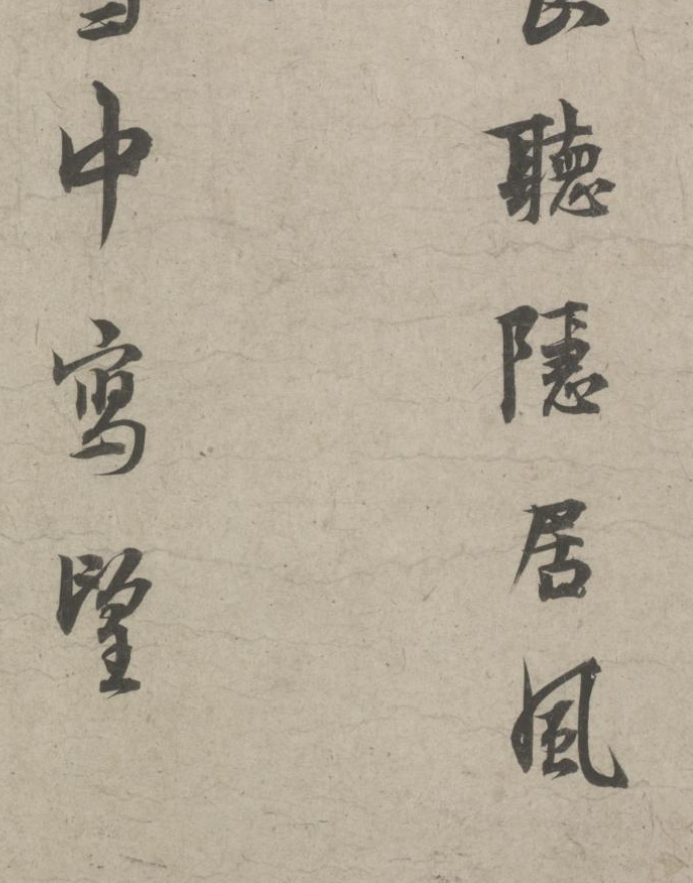 聽隱居風
中寫望